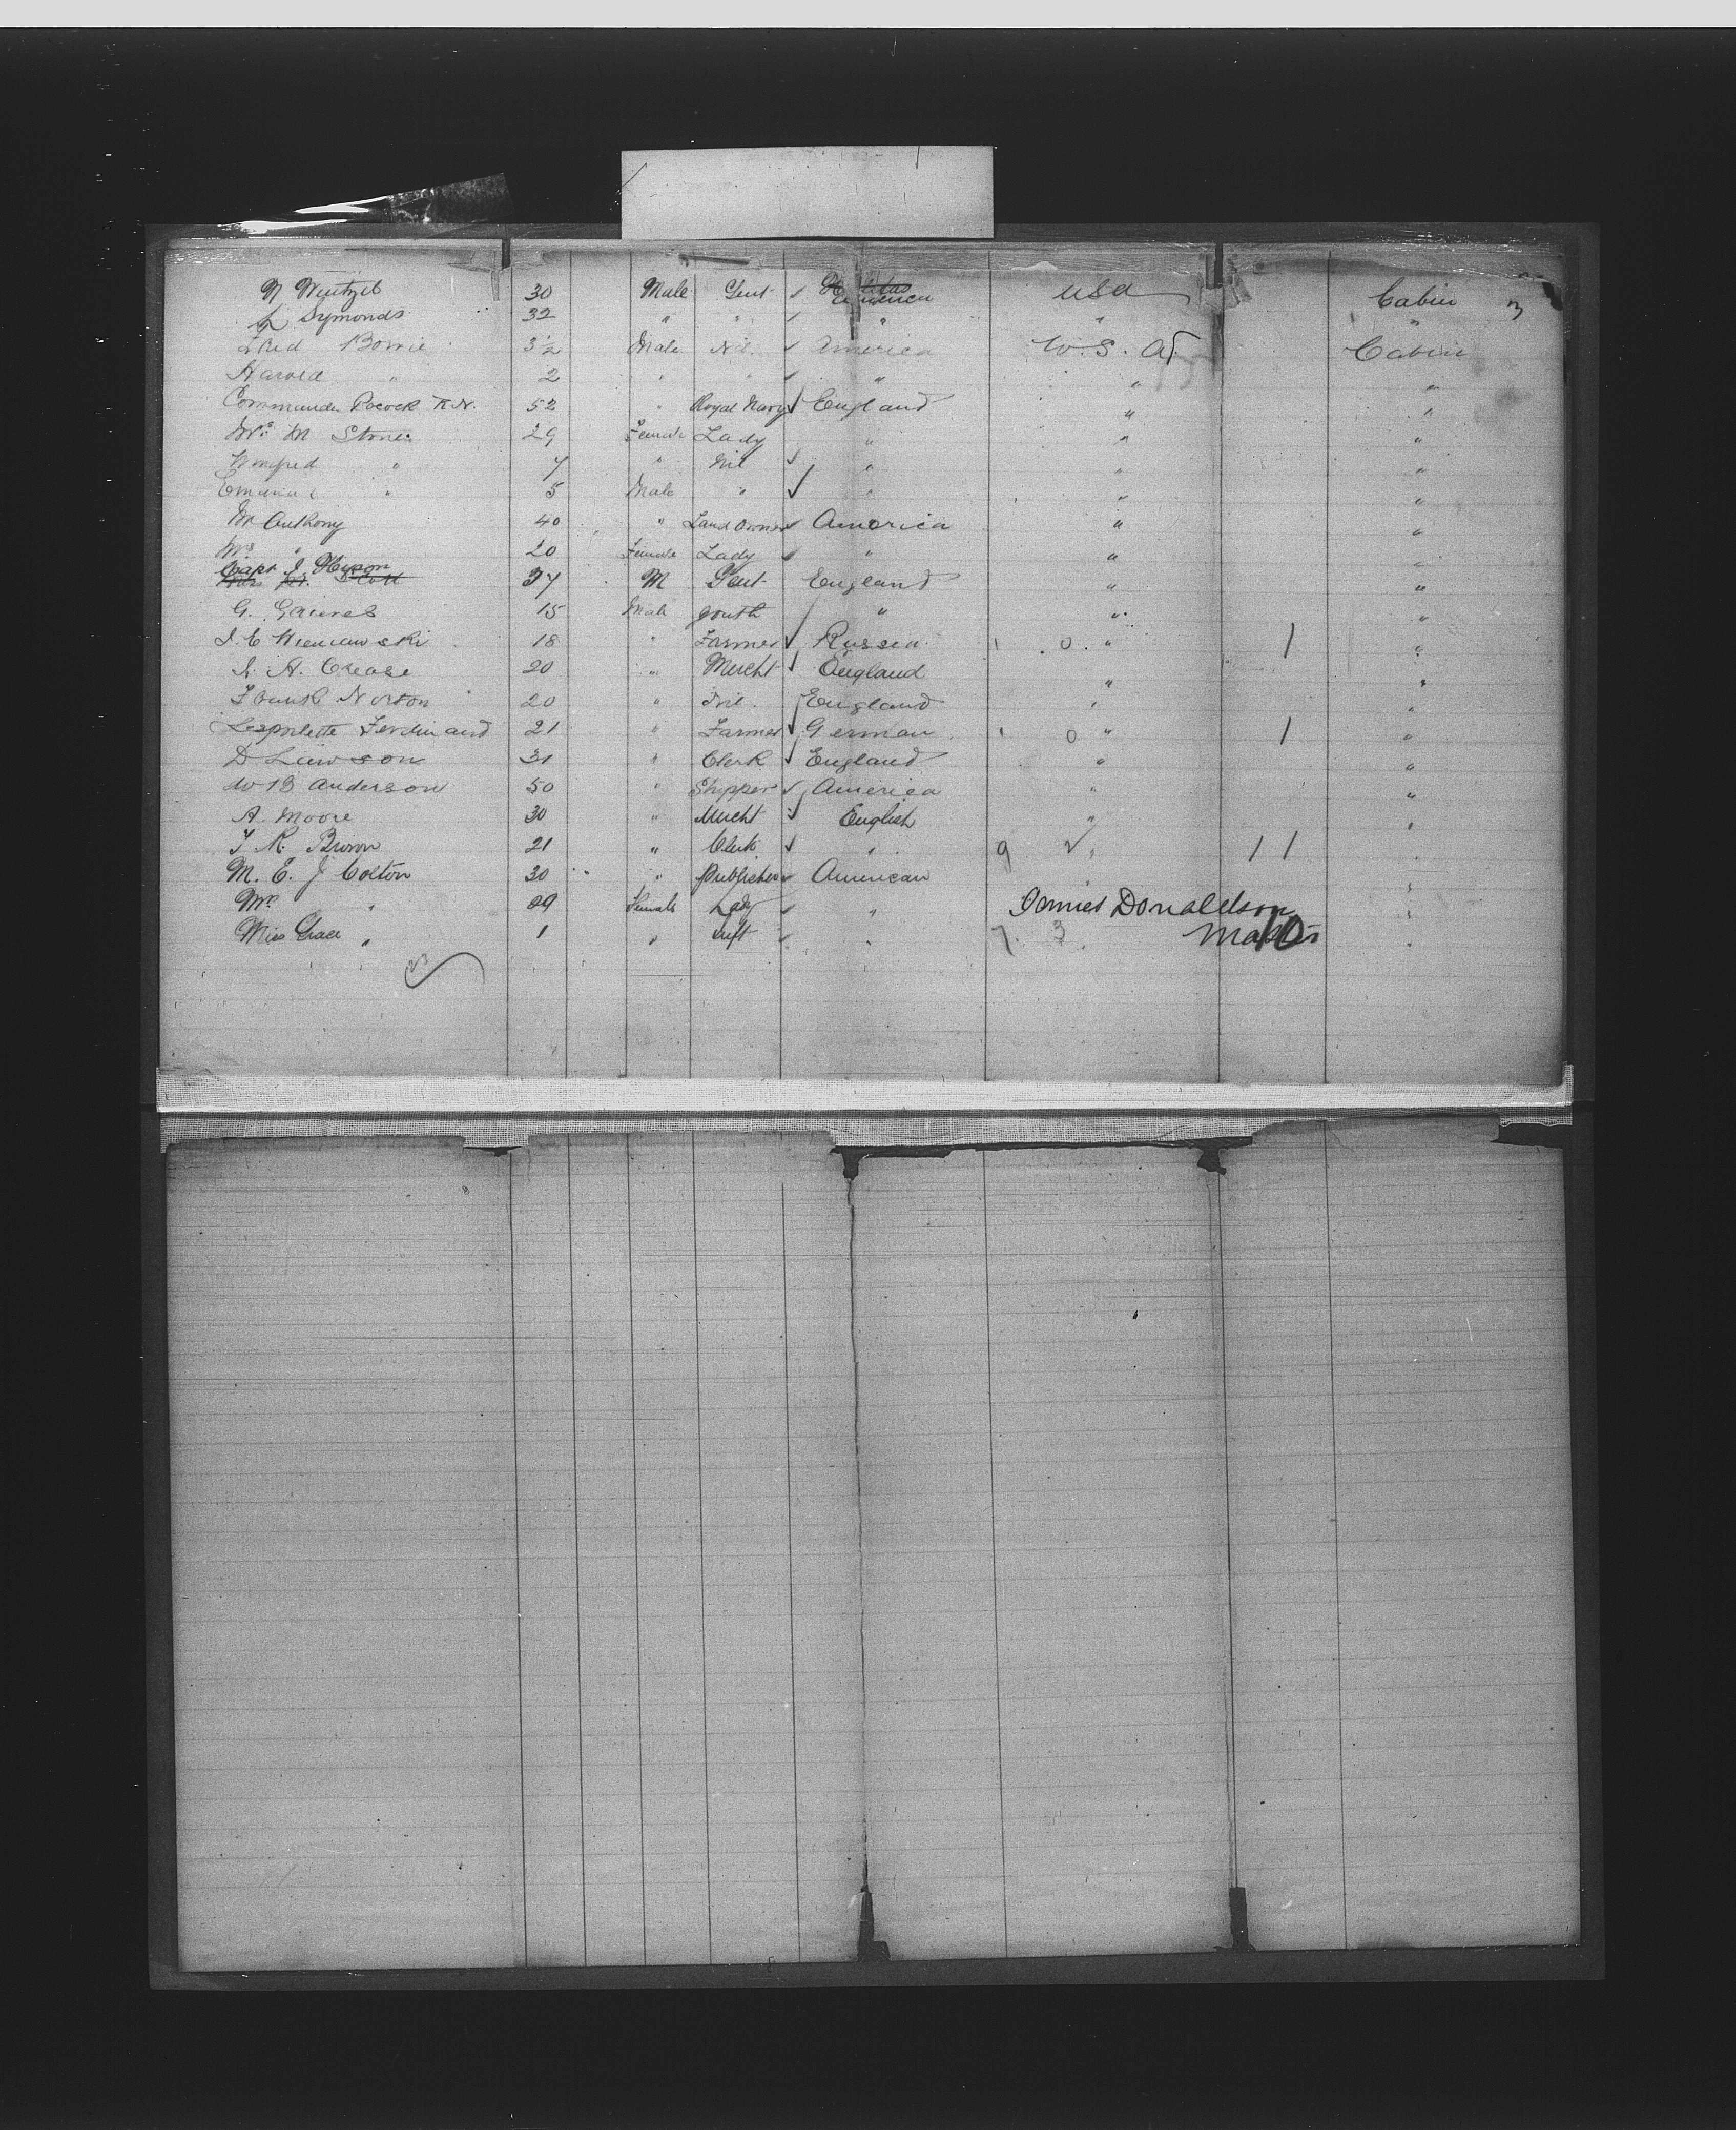 N Wentzel 30 Male Gent ✓ America USA Cabin 3
L Symonds 32 " " ✓ " " "
Fred Bowie 3½ Male Nil. ✓ America U.S.A. Cabin
Harold " 2 " " ✓ " " "
Commander Pocock R.N. 52 " Royal Navy ✓ England " "
Mrs M Stone 29 Female Lady " " "
Winifred " 7 " Nil ✓ " " "
" 5 Male " ✓ " " "
Mr Anthony 40 " Land Owner ✓ America " "
Mrs " 20 Female Lady ✓ " " "
Capt J.
37 M Gent England " "
G. 15 Male Youth " " "
18 " Farmer ✓ Russia 0 " 1 "
A. Crease 20 " Mercht ✓ England " "
Frank Norton 20 " Nil. England " "
Ferdinand 21 " Farmer ✓ German 0 " 1 "
D Lawson 31 " Clerk ✓ England " "
W B Anderson 50 " Shipper ✓ America " "
A. Moore 30 " Mercht ✓ English " "
T. R. 21 " Clerk ✓ " 9 ✓ " 11 "
M. E. J Colton 30 " Publisher ✓ American "
Mrs " 29 Female Lady ✓ " James Donaldson "
Miss Grace " 1 " Inft ✓ " 7. 3 Master 10 "
23